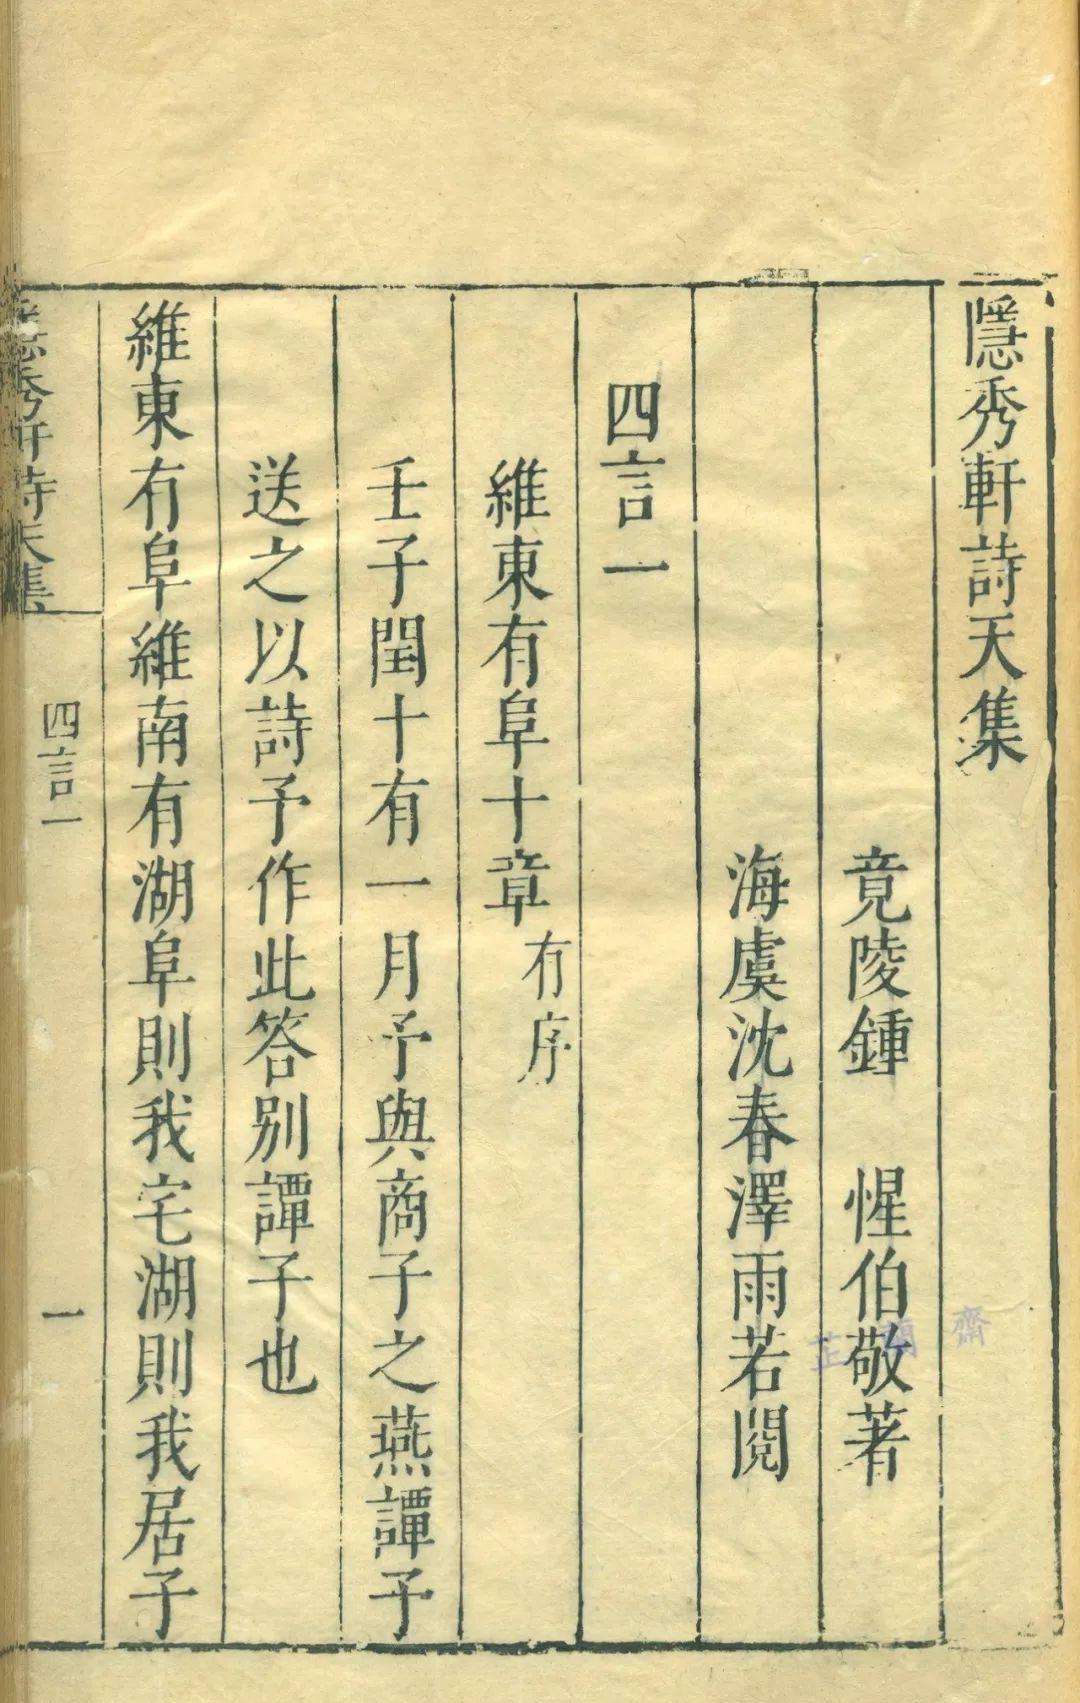 隱秀軒詩天集
竟陵鍾　惺伯敬著
海虞沈春澤雨若閱
四言一
維東有阜十章有序
壬子閏十有一月予與商子之燕譚子
送之以詩予作此答别譚子也
維東有阜維南有湖阜則我宅湖則我居子
隱秀軒詩天集
四言一
一
齋